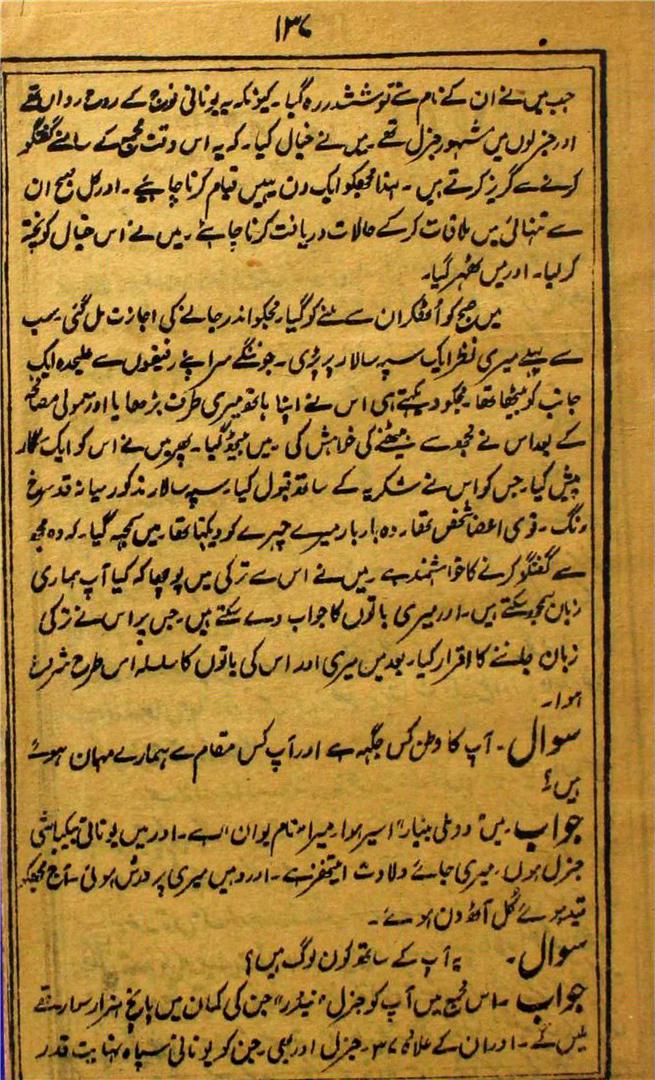 ۱۳۷
جب میں نے ان کے نام سنے تو ششدر رہ گیا۔ کیونکہ یہ یونانی فوج کے روح رواں تھے
اور جنرلوں میں مشہور جنرل تھے۔ میں نے خیال کیا۔ کہ یہ اس وقت مجمع کے سامنے گفتگو
کرنے سے گریز کرتے ہیں۔ لہذا مجھکو ایک دن یہیں قیام کرنا چاہئے۔ اور کل صبح ان
سے تنہائی میں ملاقات کر کے حالات دریافت کرنا چاہئے۔ میں نے اس خیال کو پختہ
کر لیا۔ اور میں ٹھہر گیا۔
میں صبح کو اُٹھکر ان سے ملنے کو گیا۔ مجکو اندر جانے کی اجازت مل گئی۔ سب
سے پہلے میری نظر ایک سپہ سالار پر پڑی۔ جو ننگے سر اپنے رفیقوں سے علیحدہ ایک
جانب کو بیٹھا تھا۔ مجکو دیکھتے ہی اس نے اپنا ہاتھ میری طرف بڑھایا اور معمولی مصافحہ
کے بعد اس نے مجھ سے بیٹھنے کی خواہش کی۔ میں بیٹھ گیا۔ پھر میں نے اس کو ایک سگار
پیش کیا۔ جس کو اس نے شکریہ کے ساتھ قبول کیا۔ سپہ سالار مذکور میانہ قد سرخ
رنگ۔ قوی اعضا شخص تھا۔ وہ بار بار میرے چہرے کو دیکھتا تھا۔ میں سمجھ گیا۔ کہ وہ مجھ
سے گفتگو کرنے کا خواہشمند ہے۔ میں نے اس سے ترکی میں پوچھا کہ کیا آپ ہماری
زبان سمجھ سکتے ہیں۔ اور میری باتوں کا جواب دے سکتے ہیں۔ جس پر اس نے ترکی
زبان جاننے کا اقرار کیا۔ بعد میں میری اور اس کی باتوں کا سلسلہ اس طرح شروع
ہوا۔
سوال۔ آپ کا وطن کس جگہہ ہے اور آپ کس مقام سے ہمارے مہمان ہوئے
ہیں؟
جواب۔ میں "دوملی بنیار" اسیر ہوا۔ میرا نام یوان ہے۔ اور میں یونانی بیکباشی
جنرل ہوں۔ میری جائے ولادت ایتھنز ہے۔ اور وہیں میری پرورش ہوئی۔ آج مجھکو
قید ہوئے کُل آٹھ دن ہوئے۔
سوال۔ یہ آپ کے ساتھ کون لوگ ہیں؟
جواب۔ اس خیمے میں آپ کو جنرل "نیڈر" جن کی کمان میں پانچ ہزار سوار تھے
ملیں گے۔ اور ان کے علاوہ ۳۷۔ جنرل اور بھی۔ جن کو یونانی سپاہ نہایت قدر